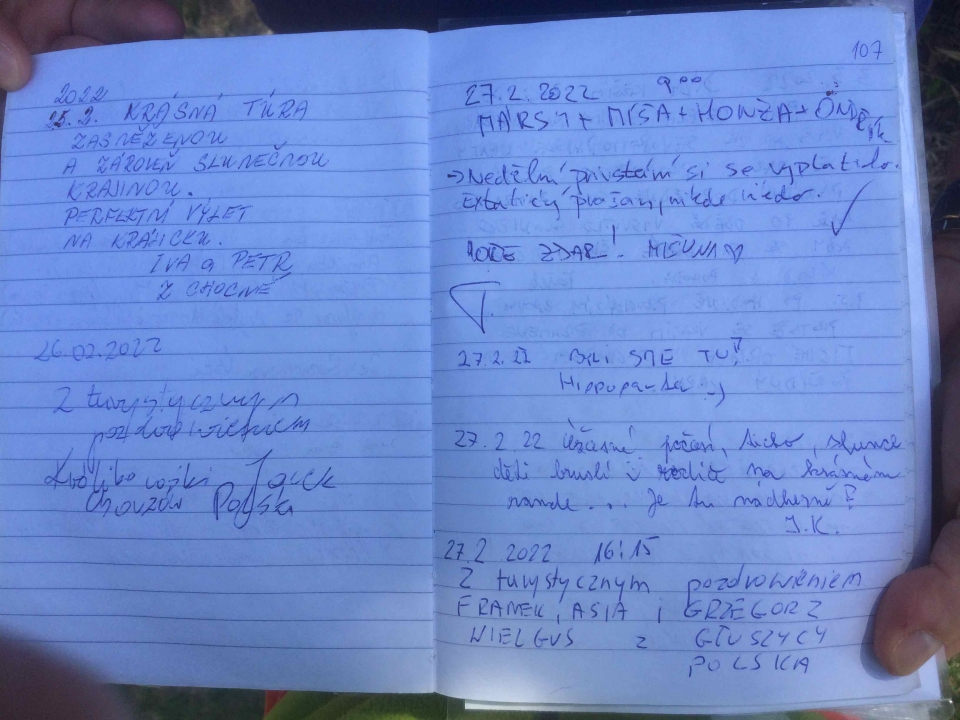 2022
25.2. KRÁSNÁ TÚRA
ZASNĚŽENOU
A ZÁROVEŇ SLUNEČNOU
KRAJINOU.
PERFEKTNÍ VÝLET
NA KRÁLIČKU.
IVA a PETR
Z CHOCNĚ
26.02.2022
Z turystycznym
pozdrowieniem
Jacek
Polska
107
27.2.2022 9°°
MÁRSY + MÍŠA + HONZA + ONDŘ
→ Nedělní přivstání si se vyplatilo.
Extatický prašan, nikde nikdo.
HOŘE ZDAR! MÍŠUNA
27.2.22 BYLI SME TU!
Hippopanda :)
27.2.22 Úžasné počasí, ticho, slunce
děti bruslí i rodiče na krásném
rande... Je tu nádherně!
J.K.
27.2 2022 16:15
Z turystycznym pozdrowieniem
FRANEK, ASIA i GRZEGORZ
WIELGUS z GŁUSZYCY
POLSKA